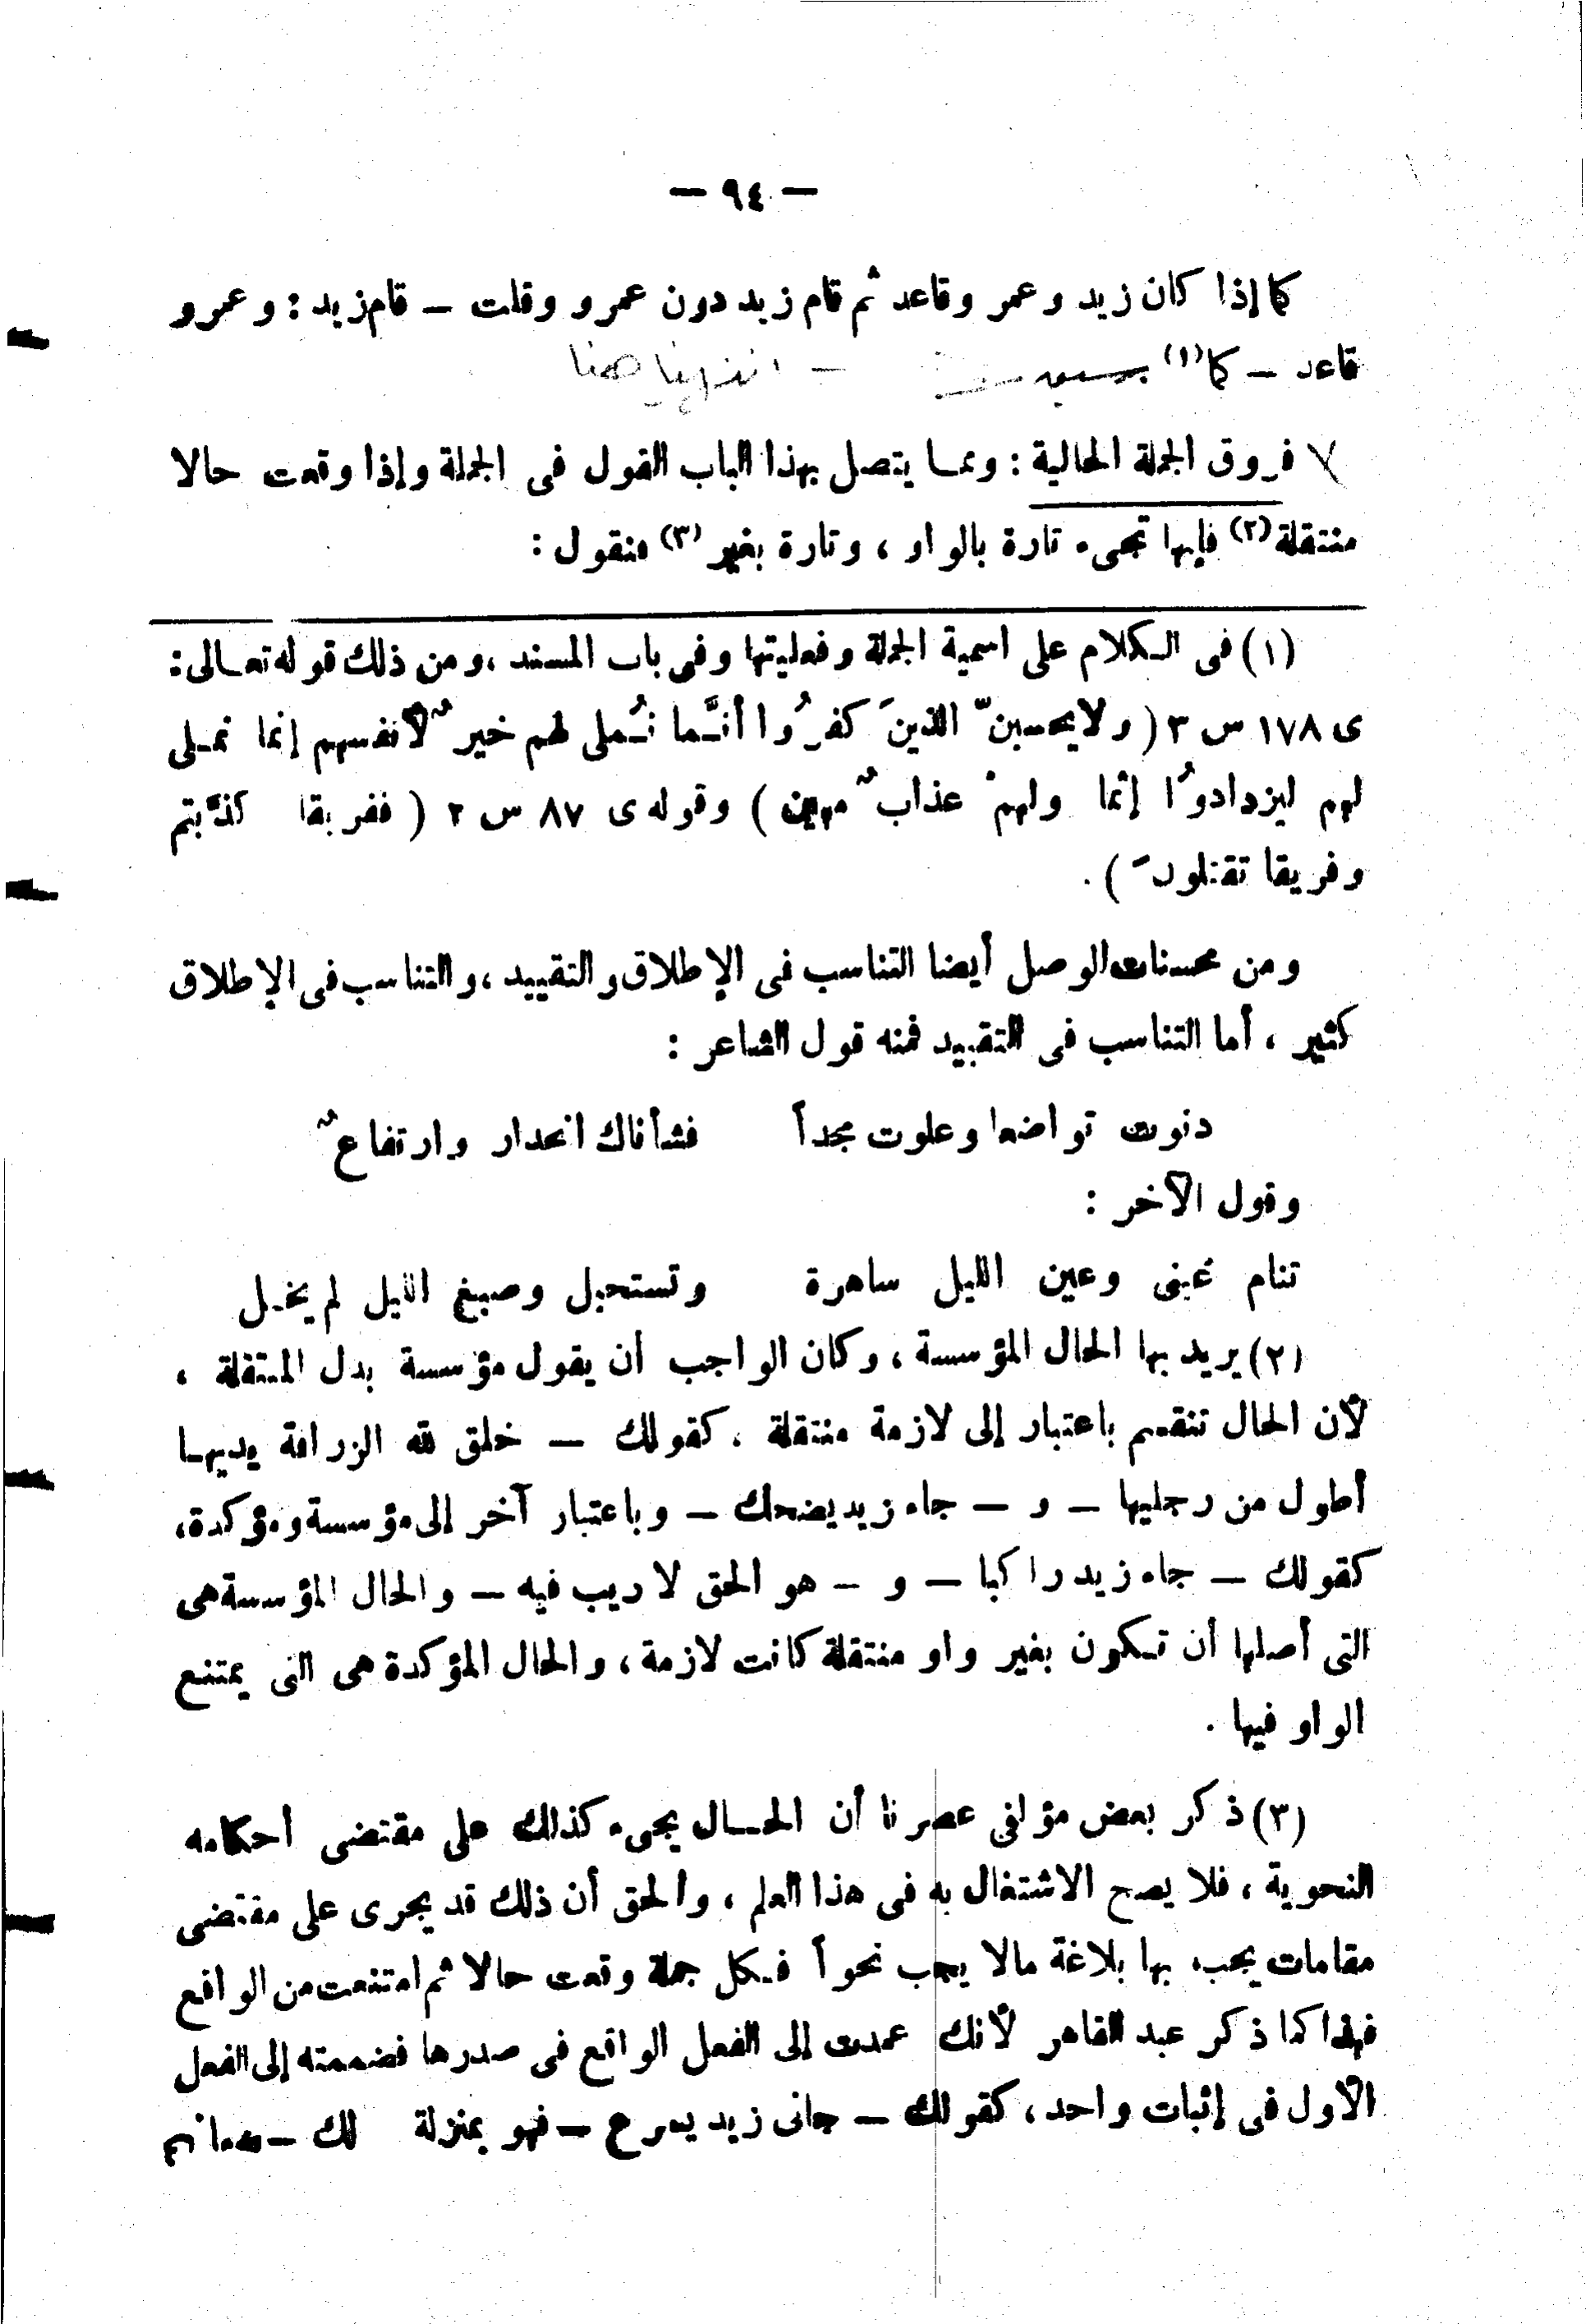 — ٩٤ —
كما إذا كان زيد وعمر وقاعد ثم قام زيد دون عمرو وقلت — قام زيد : وعمرو
قاعد — كما (١) سبق — انتهينا هنا
فروق الجملة الحالية : ومما يتصل بهذا الباب القول فى الجملة وإذا وقعت حالا
منتقلة (٢) فإنها تجىء تارة بالواو ، وتارة بغير (٣) فنقول :
(١) فى الكلام على اسمية الجملة وفعليتها وفى باب المسند ، ومن ذلك قوله تعالى :
ى ١٧٨ س ٣ ( ولا يحسبنّ الذينَ كفرُوا أنَّما نُملى لهم خيرٌ لأنفسهم إنما نملى
لهم ليزدادوُا إثما ولهمْ عذابٌ مهين ) وقوله ى ٨٧ س ٢ ( ففريقا كذَّبتم
وفريقا تقتلونَ ) .
ومن محسنات الوصل أيضا التناسب فى الإطلاق والتقييد ، والتناسب فى الإطلاق
كثير ، أما التناسب فى التقييد فمنه قول الشاعر :
دنوت تواضعا وعلوت مجداً فشأناك انحدار وارتفاعٌ
وقول الآخر :
تنام عينى وعين الليل ساهرة وتستحيل وصبغ الليل لم يحل
(٢) يريد بها الحال المؤسسة ، وكان الواجب أن يقول مؤسسة بدل المنتقلة ،
لأن الحال تنقسم باعتبار إلى لازمة منتقلة . كقولك — خلق الله الزرافة يديها
أطول من رجليها — و — جاء زيد يضحك — وباعتبار آخر إلى مؤسسة ومؤكدة ،
كقولك — جاء زيد راكبا — و — هو الحق لا ريب فيه — والحال المؤسسة هى
التى أصلها أن تكون بغير واو منتقلة كانت لازمة ، والحال المؤكدة هى التى يمتنع
الواو فيها .
(٣) ذكر بعض مؤلفى عصرنا أن الحال يجىء كذلك على مقتضى أحكامه
النحوية ، فلا يصح الاشتغال به فى هذا العلم ، والحق أن ذلك قد يجرى على مقتضى
مقامات يجب بها بلاغة مالا يجب نحواً فكل جملة وقعت حالا ثم امتنعت من الواقع
فهذا كما ذكر عبد القاهر لأنك عمدت إلى الفعل الواقع فى صدرها فضممته إلى الفعل
الأول فى إثبات واحد ، كقولك — جانى زيد يسرع — فهو بمنزلة لك —